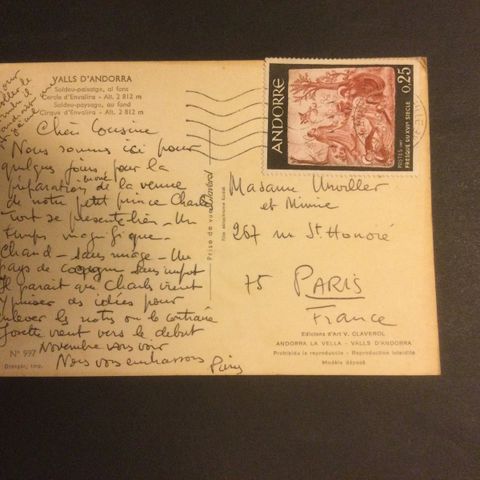 VALLS D'ANDORRA
Soldeu-paisatge, al fons
Cercle d'Envalira - Alt. 2 812 m
Soldeu-paysage, au fond
Cirque d'Envalira - Alt. 2 812 m
Chère Cousine
Nous sommes ici pour
quelques jours pour la
préparation de la venue
de notre petit prince Charles
tout se présente bien - Un
temps magnifique.
Chaud - sans nuage - Un
pays de cocagne sans impot
Il parait que Charles vient
y puiser des idées pour
enlever les notres ou le contraire
Josette vient vers le debut
Novembre vous voir
Nous vous embrassons
Nº 997
Prise de vue
ANDORRE
0,25
POSTES 1967
FRESQUE DU XVIe SIECLE
Madame
et Mimie
267 rue St Honoré
75 PARIS
France
Edicions d'Art V. CLAVEROL
ANDORRA LA VELLA - VALLS D'ANDORRA
Prohibida la reproducció - Reproduction interdite
Modèle déposé